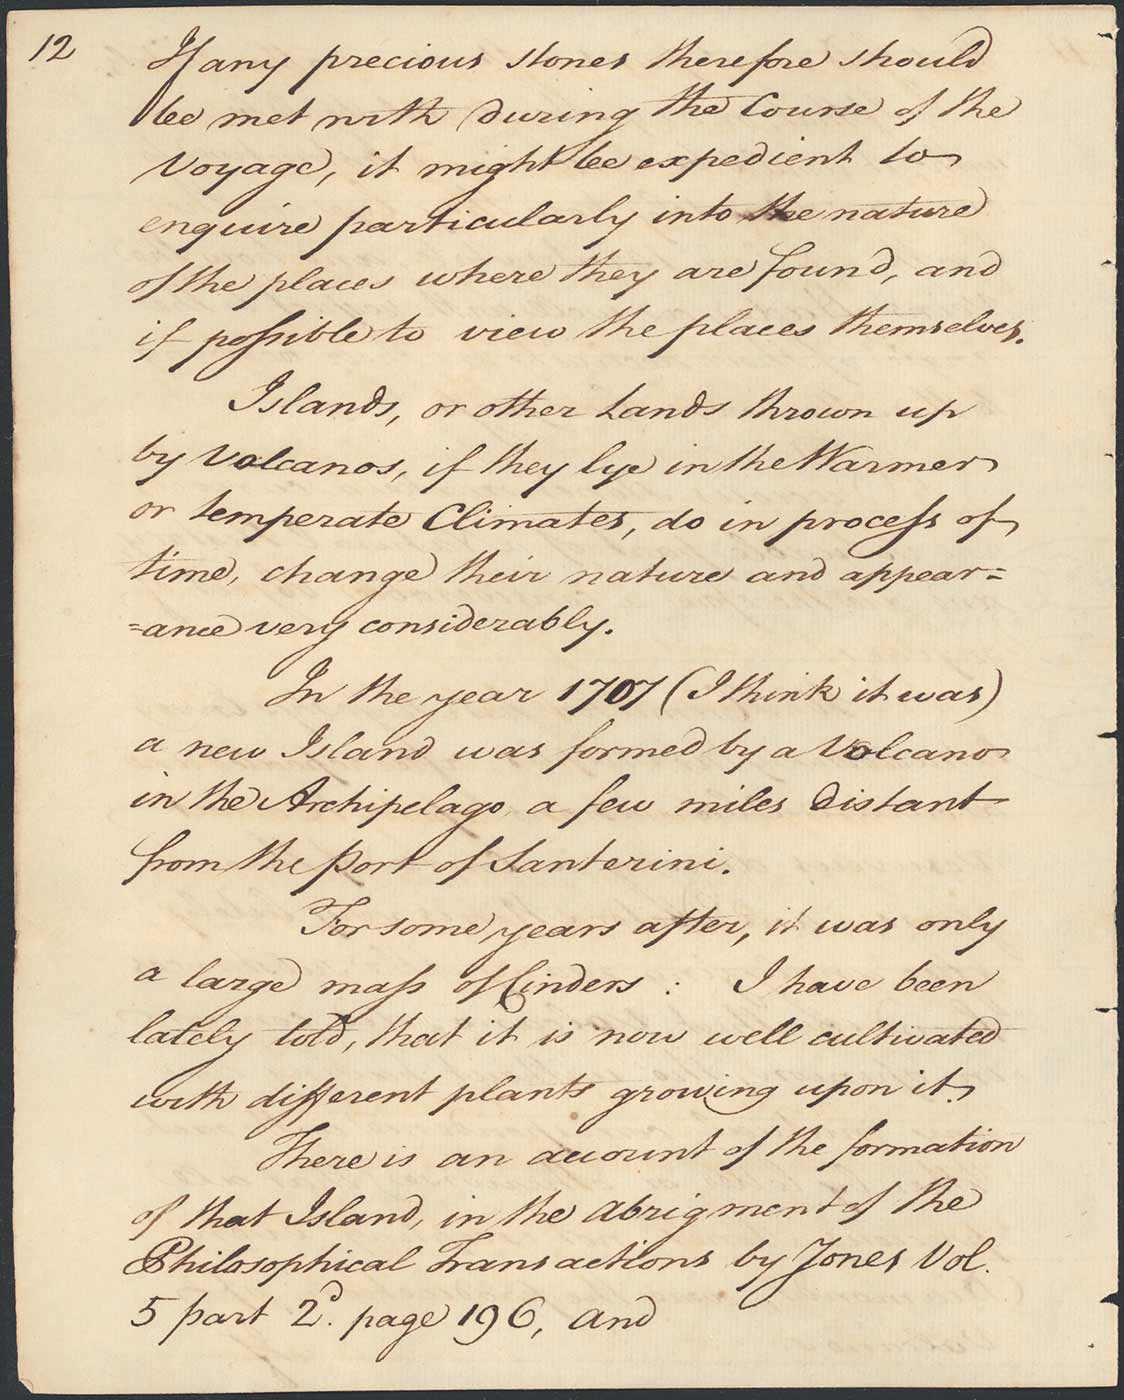 12
If any precious stones therefore should
be met with during the Course of the
Voyage, it might be expedient to
enquire particularly into the nature
of the places where they are found, and
if possible to view the places themselves.
Islands, or other Lands thrown up
by Volcanos, if they lye in the Warmer
or temperate Climates, do in process of
time, change their nature and appear=
=ance very considerably.
In the year 1707 (I think it was)
a new Island was formed by a Volcano
in the Archipelago, a few miles distant
from the Port of Santerini.
For some years after, it was only
a large mass of Cinders: I have been
lately told, that it is now well cultivated
with different plants growing upon it.
There is an account of the formation
of that Island, in the abrigment of the
Philosophical Transactions by Jones Vol.
5 part 2d. page 196, and